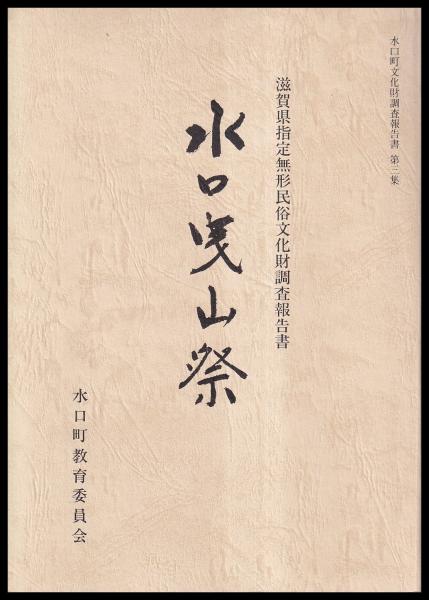 水口町文化財調査報告書 第三集
滋賀県指定無形民俗文化財調査報告書
水口曳山祭
水口町教育委員会